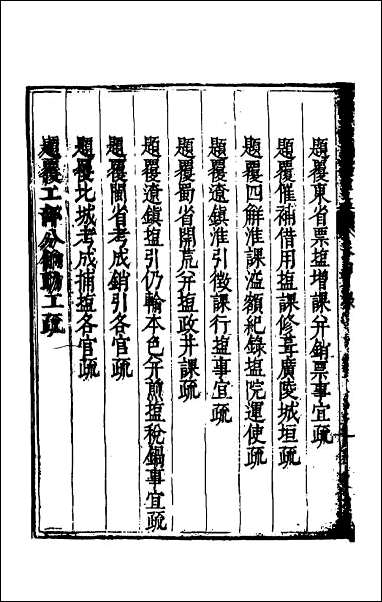 題覆東省票塩增課并銷票事宜疏
題覆催補借用塩課修葺廣陵城垣疏
題覆四觧淮課溢額紀錄塩院運使疏
題覆遼鎮淮引徵課行塩事宜疏
題覆蜀省開荒并塩政井課疏
題覆遼鎮塩引仍輸本色并煎塩稅鍋事宜疏
題覆閩省考成銷引各官疏
題覆北城考成捕塩各官疏
題覆工部分餉助工疏